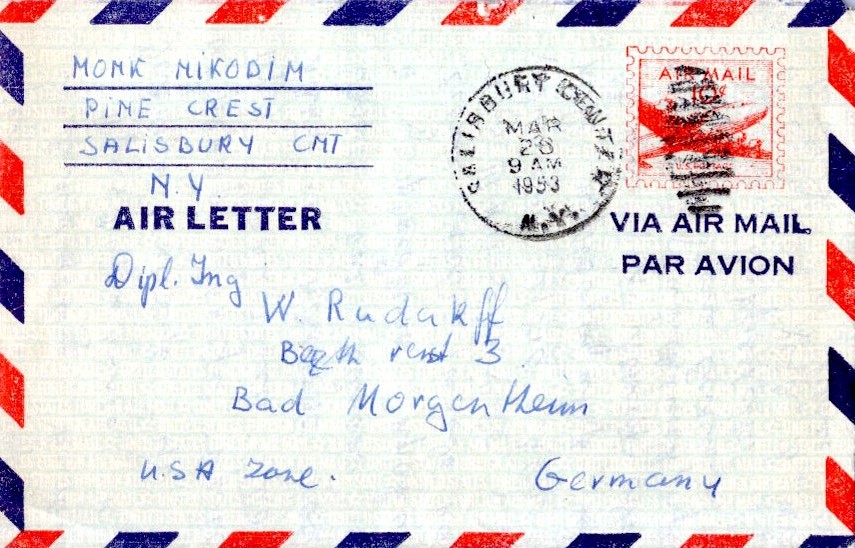 MONK NIKODIM
PINE CREST
SALISBURY CNT
N.Y.
AIR LETTER
SALISBURY CENTER
MAR
28
9 AM
1953
N.Y.
AIR MAIL
10¢
VIA AIR MAIL
PAR AVION
Dipl. Ing
W. Rudakff
3
Bad Morgentheim
USA Zone.
Germany